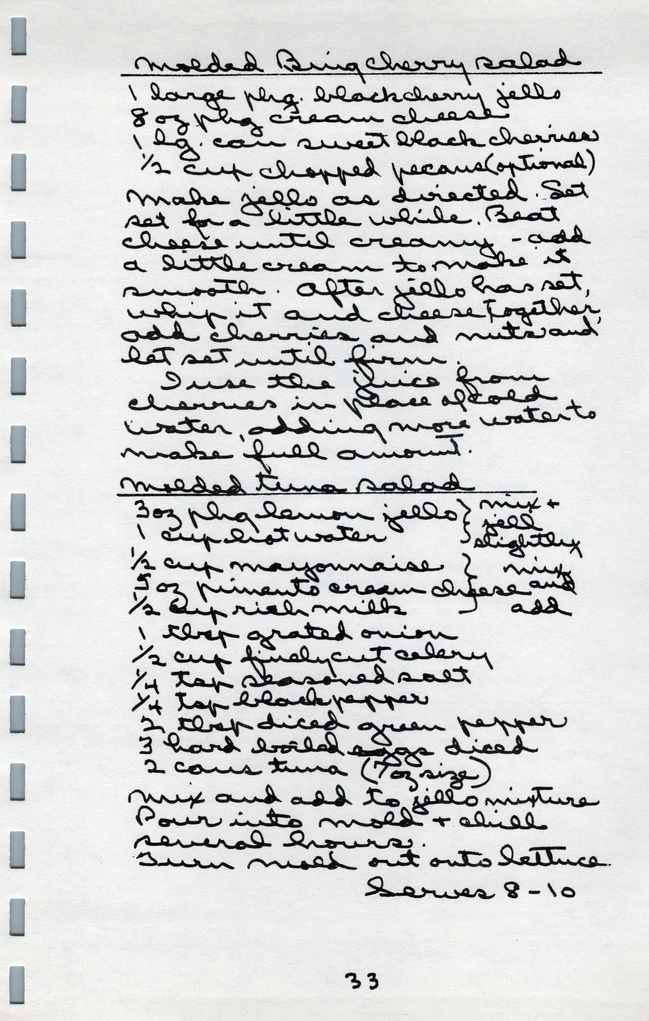 Molded Bing cherry salad
1 large pkg. blackcherry jello
8 oz pkg cream cheese
1 lg. can sweet black cherries
1/2 cup chopped pecans (optional)
Make jello as directed. Set
set for a little while. Beat
cheese until creamy - add
a little cream to make it
smooth. After jello has set,
whip it and cheese together,
add cherries and nuts and
let set until firm.
I use the juice from
cherries in place of cold
water, adding more water to
make full amount.
Molded tuna salad
3 oz pkg lemon jello } mix +
1 cup hot water } jell slightly
1/2 cup mayonnaise } mix
5 oz pimento cream cheese and
1/2 cup rich milk } add
1 tbsp grated onion
1/2 cup finely cut celery
1/4 tsp seasoned salt
1/4 tsp black pepper
2 tbsp diced green pepper
3 hard boiled eggs diced
2 cans tuna (7 oz size)
Mix and add to jello mixture
Pour into mold + chill
several hours.
Turn mold out onto lettuce.
Serves 8-10
33